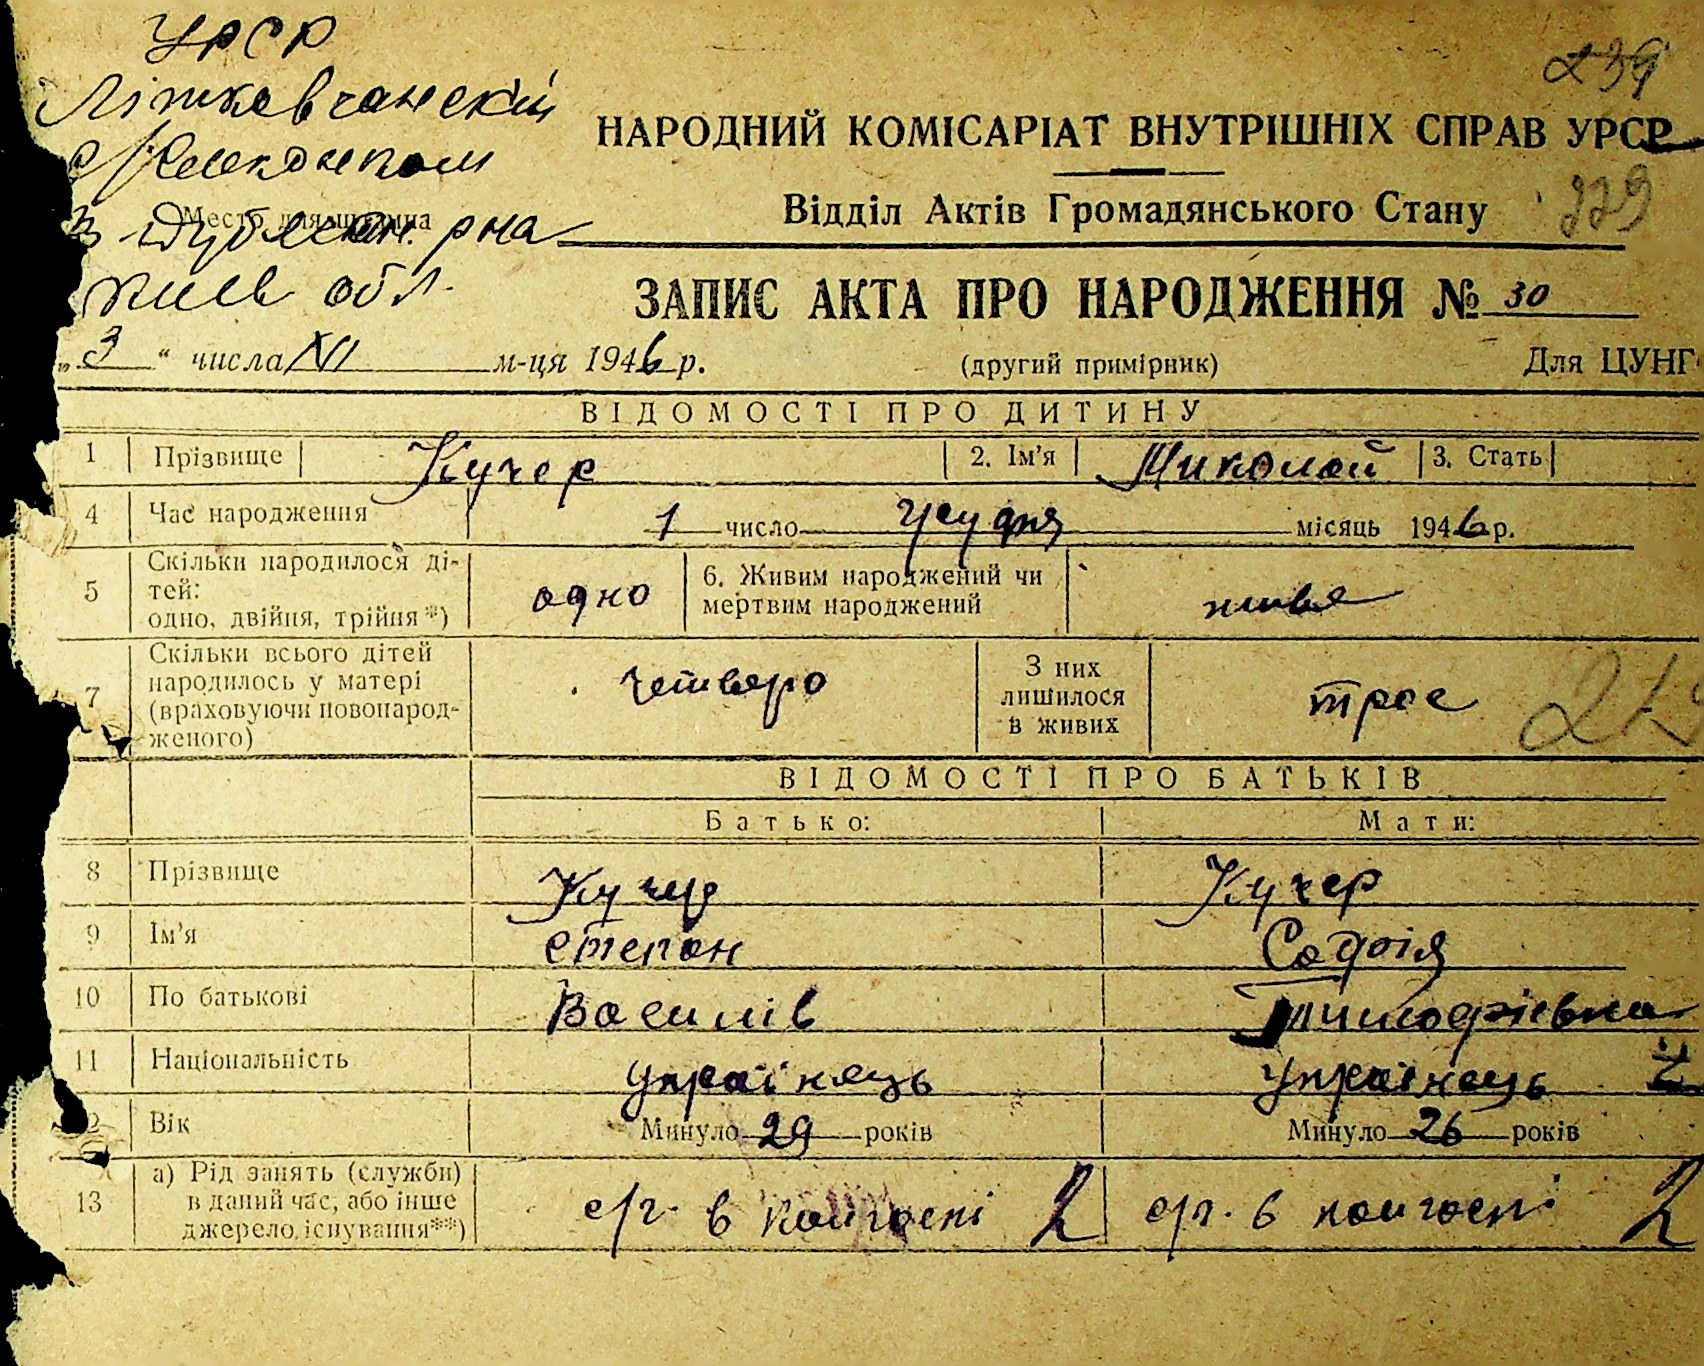 УРСР
239
НАРОДНИЙ КОМІСАРІАТ ВНУТРІШНІХ СПРАВ УРСР
Место для штампа
р на
Відділ Актів Громадянського Стану
Київ обл.
ЗАПИС АКТА ПРО НАРОДЖЕННЯ № 30
„3“ числа XII м-ця 1946 р.
(другий примірник)
Для ЦУНГ
ВІДОМОСТІ ПРО ДИТИНУ
1 Прізвище Кучер 2. Ім'я Миколай 3. Стать
4 Час народження 1 число грудня місяць 1946 р.
5 Скільки народилося ді-
тей:
одно, двійня, трійня*) одно
6. Живим народжений чи
мертвим народжений живе
7 Скільки всього дітей
народилось у матері
(враховуючи новонарод-
женого) четверо
З них
лишилося
в живих трое
ВІДОМОСТІ ПРО БАТЬКІВ
Батько: Мати:
8 Прізвище Кучер Кучер
9 Ім'я Степан Софія
10 По батькові Василів Тимофіївна
11 Національність українець українець
12 Вік Минуло 29 років Минуло 26 років
13 а) Рід занять (служби)
в даний час, або інше
джерело існування**)
с/г. в колгоспі 2 с/г. в колгоспі 2